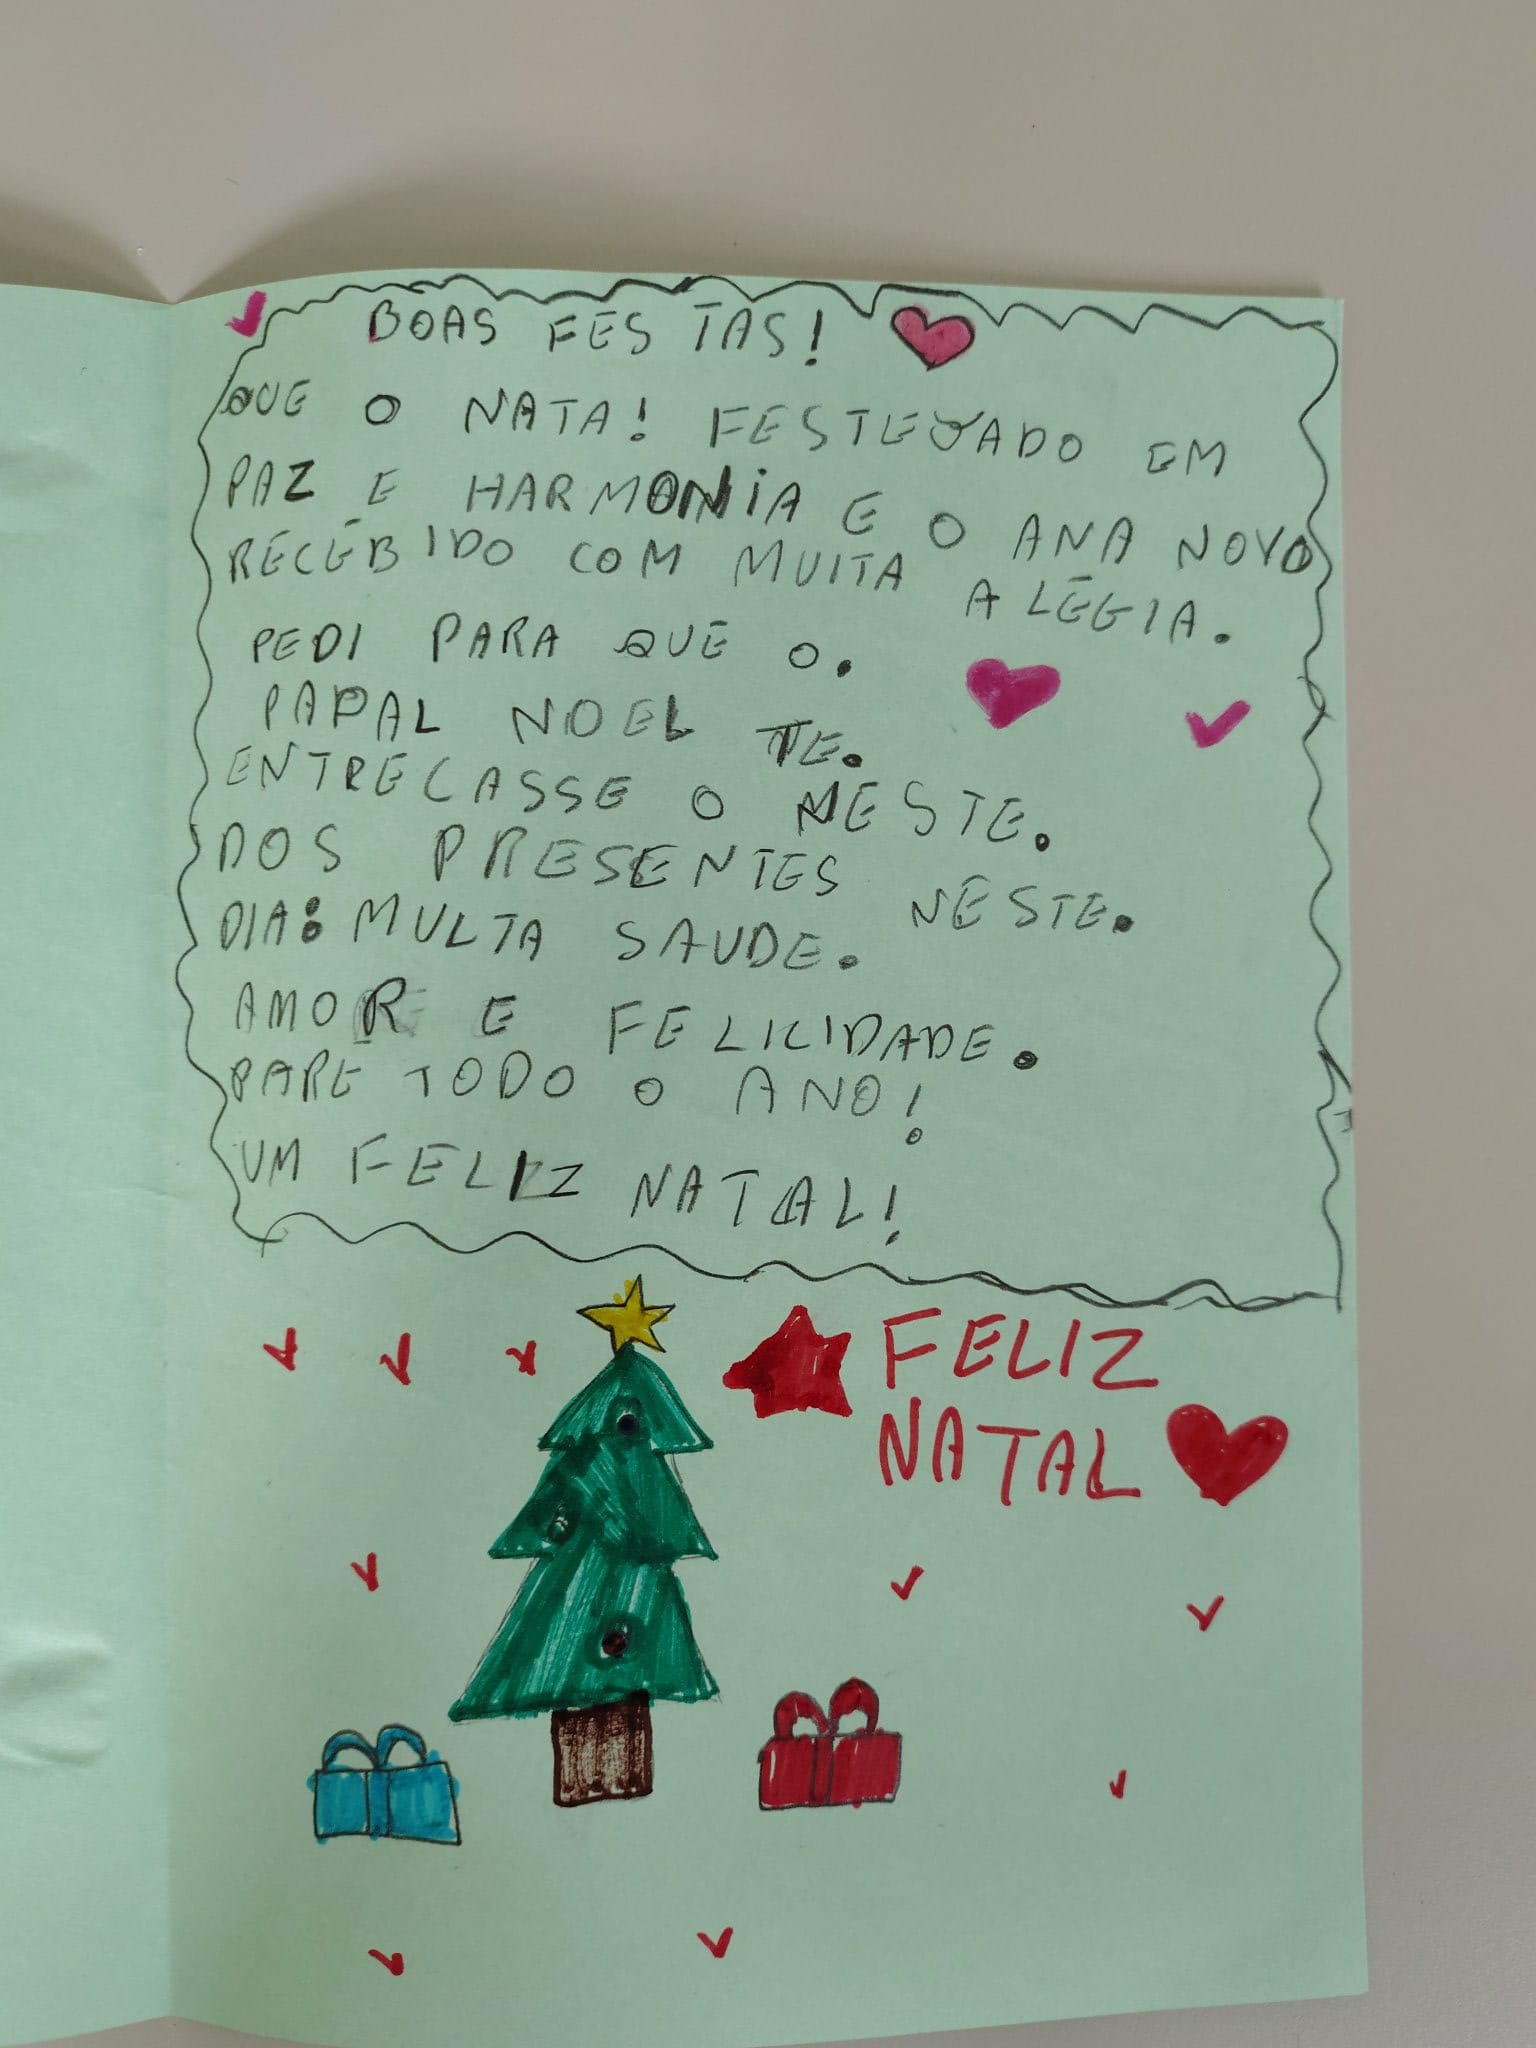 BOAS FESTAS!
QUE O NATA! FESTEJADO EM
PAZ E HARMONIA E O ANA NOVO
RECEBIDO COM MUITA ALEGIA.
PEDI PARA QUE O.
PAPAL NOEL TE.
ENTRECASSE O MESTE.
DOS PRESENTES NESTE.
DIA: MULTA SAUDE.
AMOR E FELICIDADE.
PARE TODO O ANO!
UM FELIZ NATAL!
FELIZ
NATAL